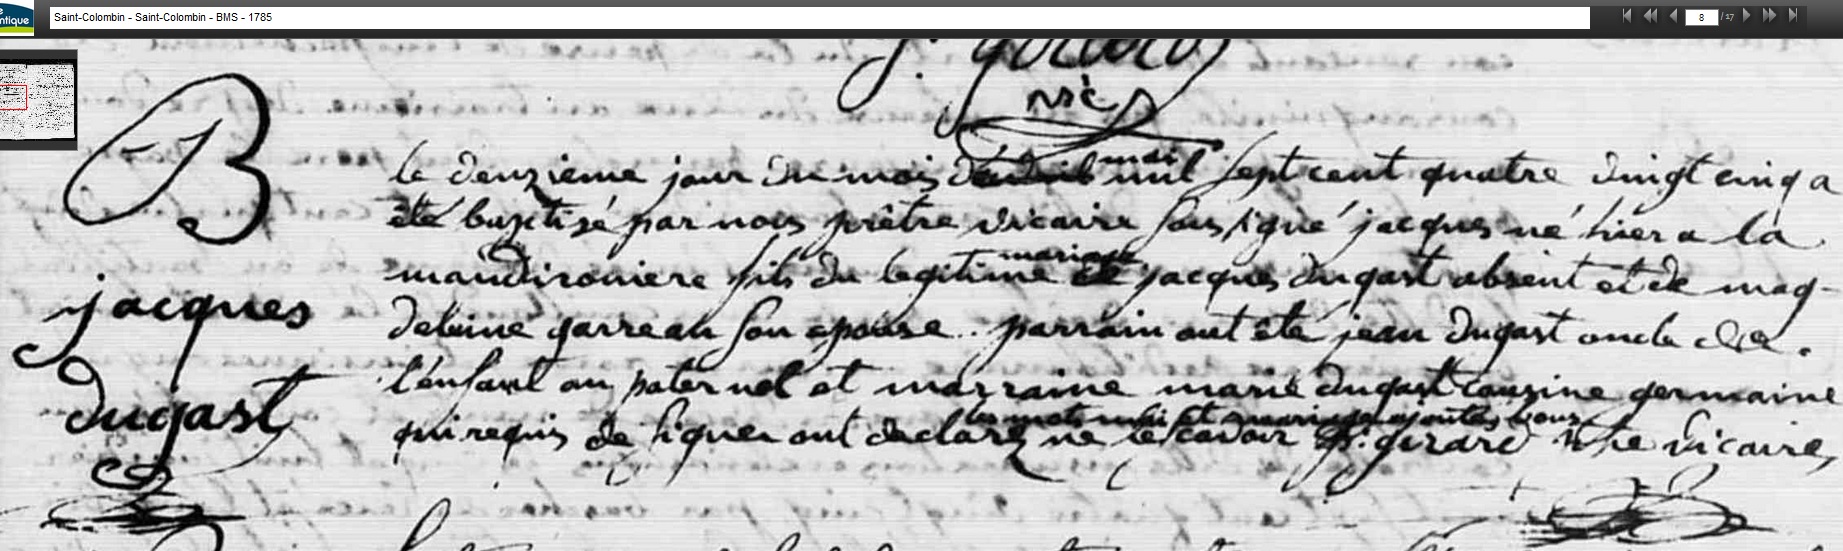 Saint-Colombin - Saint-Colombin - BMS - 1785
8 / 17
ntique
B
jacques
dugast
mai
le deuxieme jour du mois mil sept cent quatre vingt cinq a
été baptisé par nous prêtre vicaire sous signé jacques né hier a la
mariage
fils du legitime de jacques dugast absent et de mag-
deleine garreau son epouse. parrain ont été jean dugast oncle de
l'enfant au paternel et marraine marie dugast cousine germaine
les mots mai et mariage ajoutés
qui requis de signer ont declaré ne le savoir girard vicaire